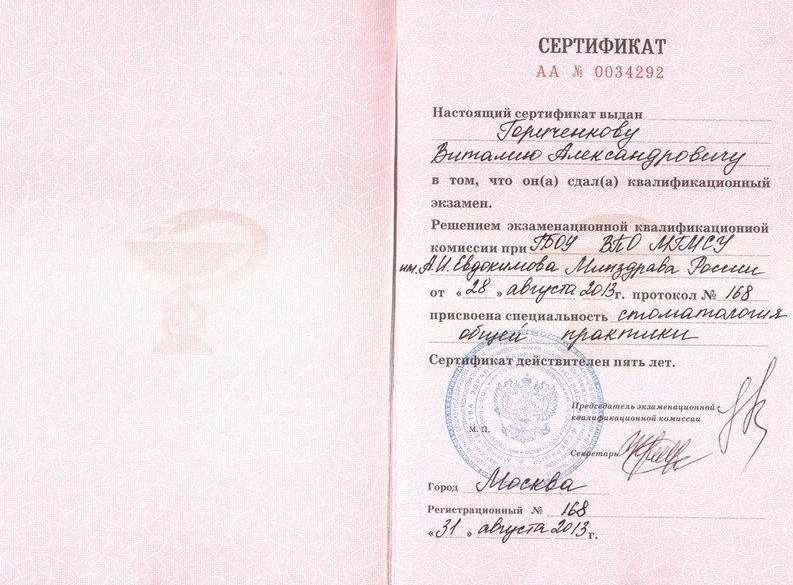 СЕРТИФИКАТ
АА № 0034292
Настоящий сертификат выдан
Гориченкову
Виталию Александровичу
в том, что он(а) сдал(а) квалификационный
экзамен.
Решением экзаменационной квалификационной
комиссии при ГБОУ ВПО МГМСУ
им. А.И. Евдокимова Минздрава России
от «28» августа 2013г. протокол № 168
присвоена специальность стоматология
общей практики
Сертификат действителен пять лет.
Председатель экзаменационной
квалификационной комиссии
М. П.
Секретарь
Город Москва
Регистрационный № 168
«31» августа 2013г.